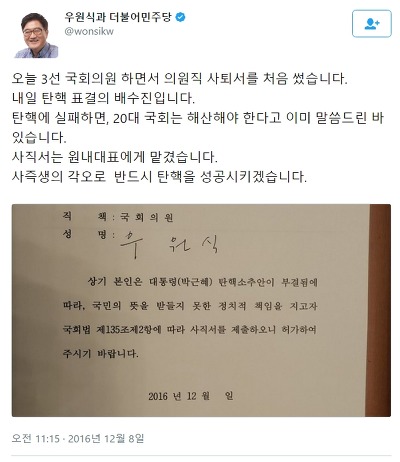 우원식과 더불어민주당
@wonsikw
오늘 3선 국회의원 하면서 의원직 사퇴서를 처음 썼습니다.
내일 탄핵 표결의 배수진입니다.
탄핵에 실패하면, 20대 국회는 해산해야 한다고 이미 말씀드린 바
있습니다.
사직서는 원내대표에게 맡겼습니다.
사즉생의 각오로 반드시 탄핵을 성공시키겠습니다.
직 책 : 국 회 의 원
성 명 : 우 원 식
상기 본인은 대통령(박근혜) 탄핵소추안이 부결됨에
따라, 국민의 뜻을 받들지 못한 정치적 책임을 지고자
국회법 제135조제2항에 따라 사직서를 제출하오니 허가하여
주시기 바랍니다.
2016 년 12 월 일
오전 11:15 · 2016년 12월 8일